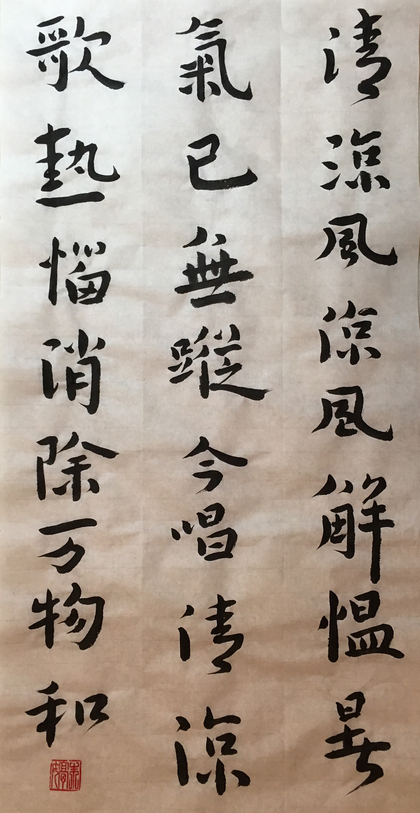 清涼風涼風解愠暑
氣已無蹤今唱清涼
歌熱惱消除万物和